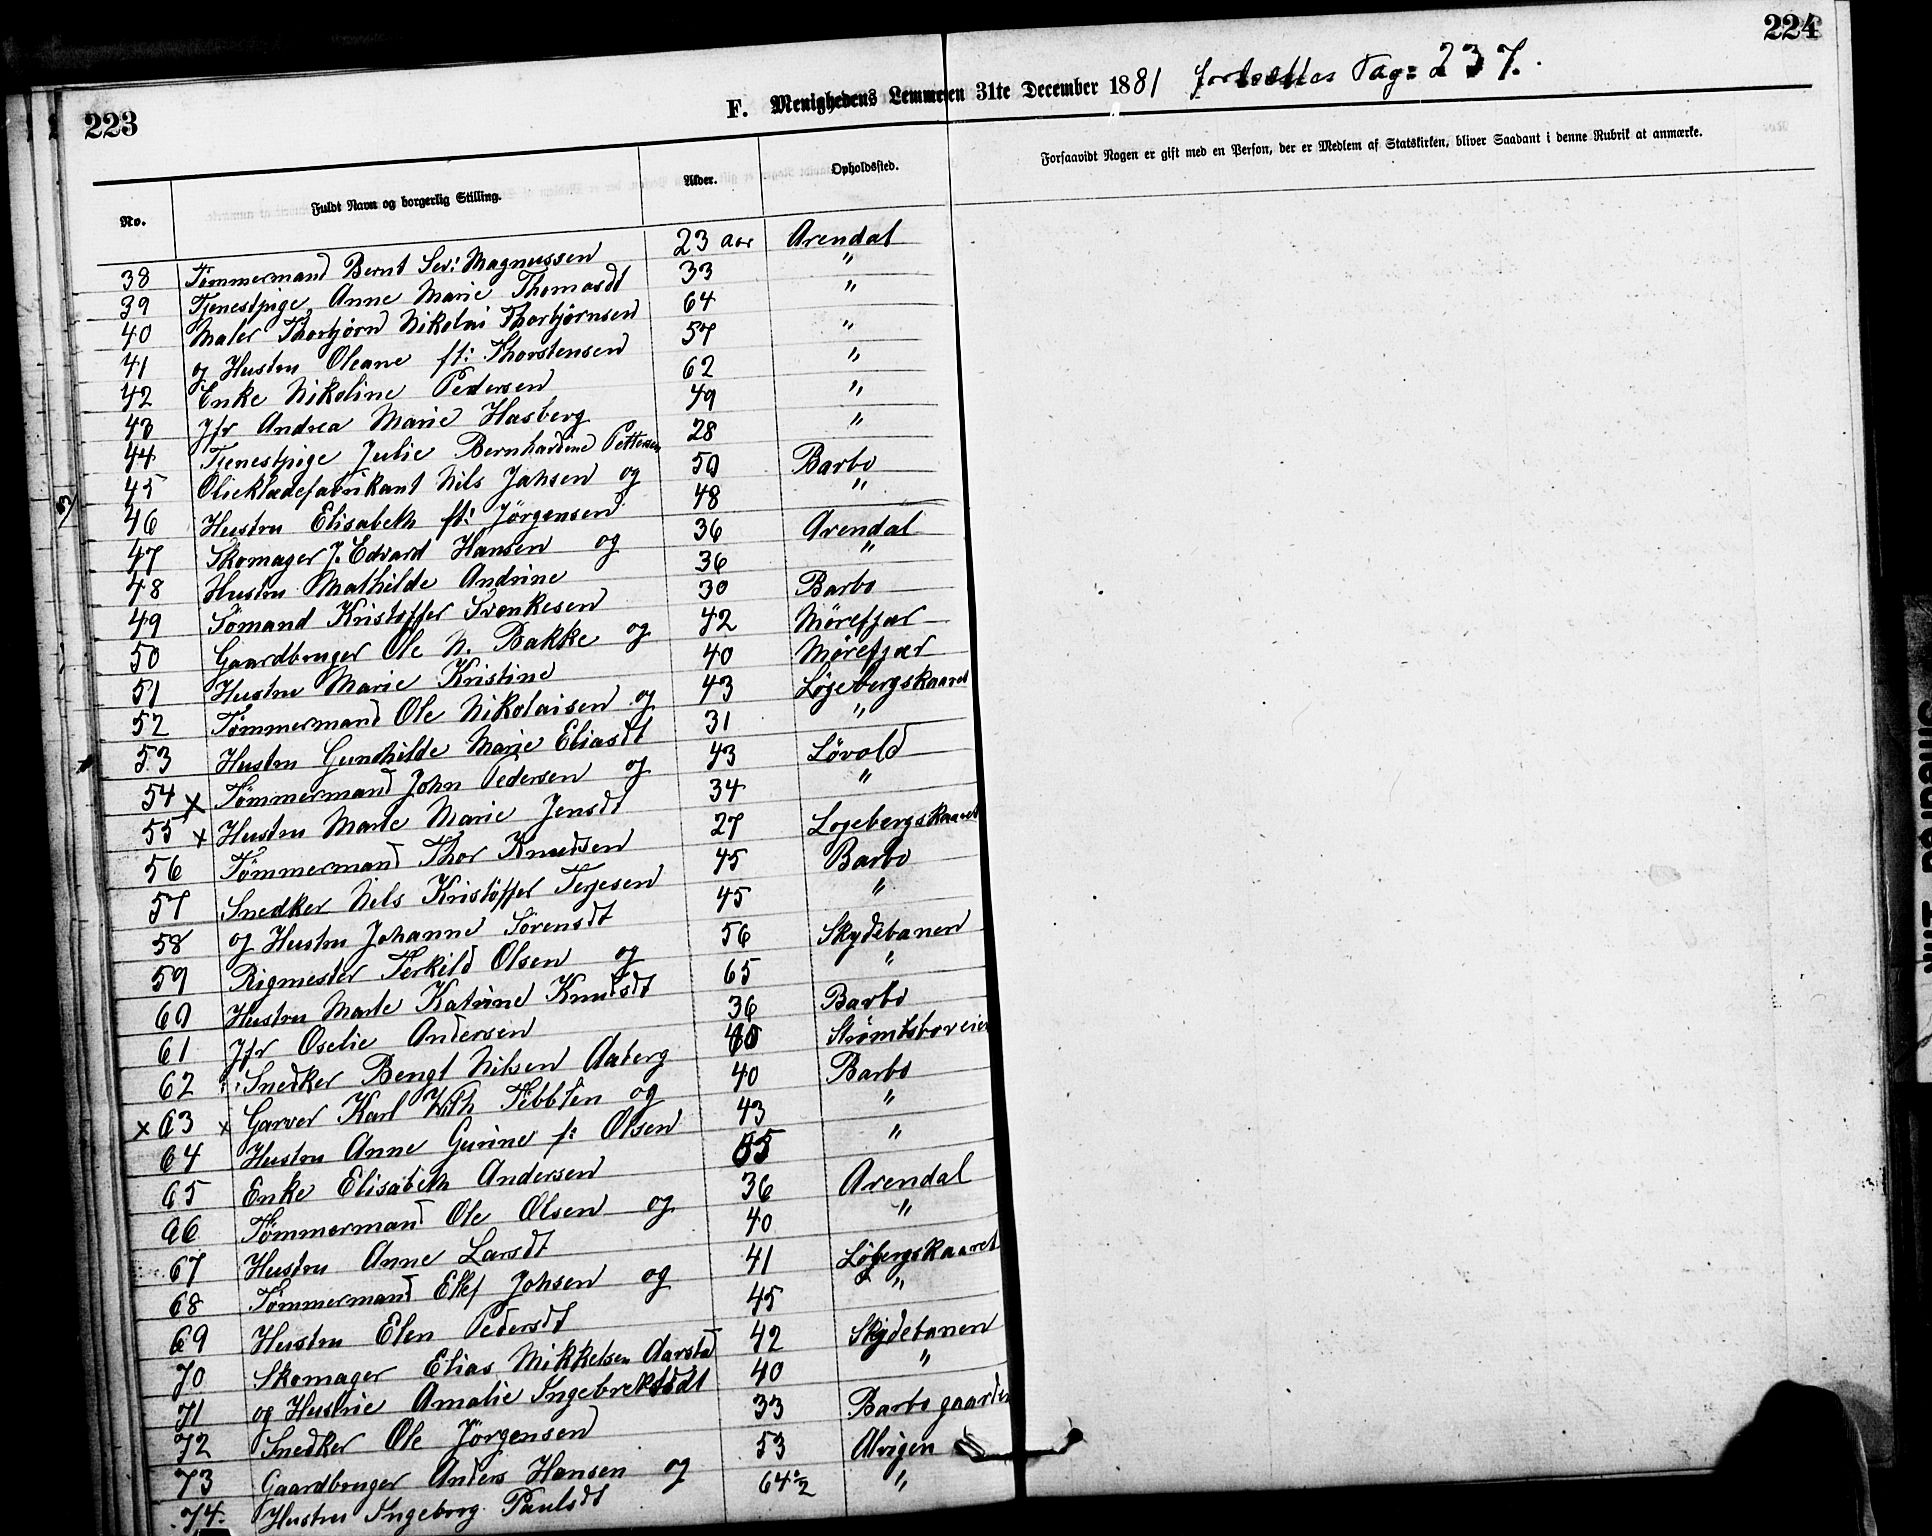 224
223
F. Menighedens Lemmer den 31te December 1881 fortsættes Pag: 237.
No.
Fuldt Navn og borgerlig Stilling.
Alder.
Opholdssted.
Forsaavidt Nogen er gift med en Person, der er Medlem af Statskirken, bliver Saadant i denne Rubrik at anmærke.
38 Tømmermand Bernt Sev: Magnussen 23 aar Arendal
39 Tjenestpige Anne Marie Thomasdt 33 "
40 Maler Thorbjørn Nikolai Thorbjørnsen 64 "
41 og Hustru Oleane ft: Thorstensen 57 "
42 Enke Nikoline Pedersen 62 "
43 Jfr Andrea Marie Hasberg 49 "
44 Tjenestpige Julie Bernhardine Pettersen 28 "
45 Olieklædefabrikant Nils Jahsen og 50 Barbo
46 Hustru Elisabeth ft: Jörgensen 48 "
47 Skomager J. Edvard Hansen og 36 Arendal
48 Hustru Mathilde Andrine 36 "
49 Sømand Kristoffer Svenkesen 30 Barbo
50 Gaardbruger Ole N. Bakke og 42 Mørefjær
51 Hustru Marie Kristine 40 Mørefjær
52 Tømmermand Ole Nikolaisen og 43 Løgebergskaaret
53 Hustru Gunhilde Marie Eliasdt 31 "
54 x Tømmermand John Pedersen og 43 Løvold
55 x Hustru Marte Marie Jensdt 34 "
56 Tømmermand Thor Knudsen 27 Logebergskaaret
57 Snedker Nils Kristoffer Terjesen 45 Barbo
58 og Hustru Johanne Sørensdt 45 "
59 Rigmester Terkild Olsen og 56 Skydebanen
60 Hustru Marte Katrine Knudsdt 65 "
61 Jfr Oselie Andersen 36 Barbo
62 Snedker Bengt Nilsen Aaberg Strømsboveien
x 63 x Garver Karl With Tebbten og 40 Barbo
64 Hustru Anne Gurine f: Olsen 43 "
65 Enke Elisabeth Andersen "
66 Tømmermand Ole Olsen og 36 Arendal
67 Hustru Anne Larsdt 40 "
68 Tømmermand Ellef Johsen og 41 Løgbergskaaret
69 Hustru Elen Pedersdt 45 "
70 Skomager Elias Mikkelsen Aarstad 42 Skydebanen
71 og Hustrue Amalie Ingebrektsdt 40 "
72 Snedker Ole Jörgensen 33 Barbogaarden
73 Gaardbruger Anders Hansen og 53 Alvigen
74 Hustru Ingeborg Paulsdt 64½ "